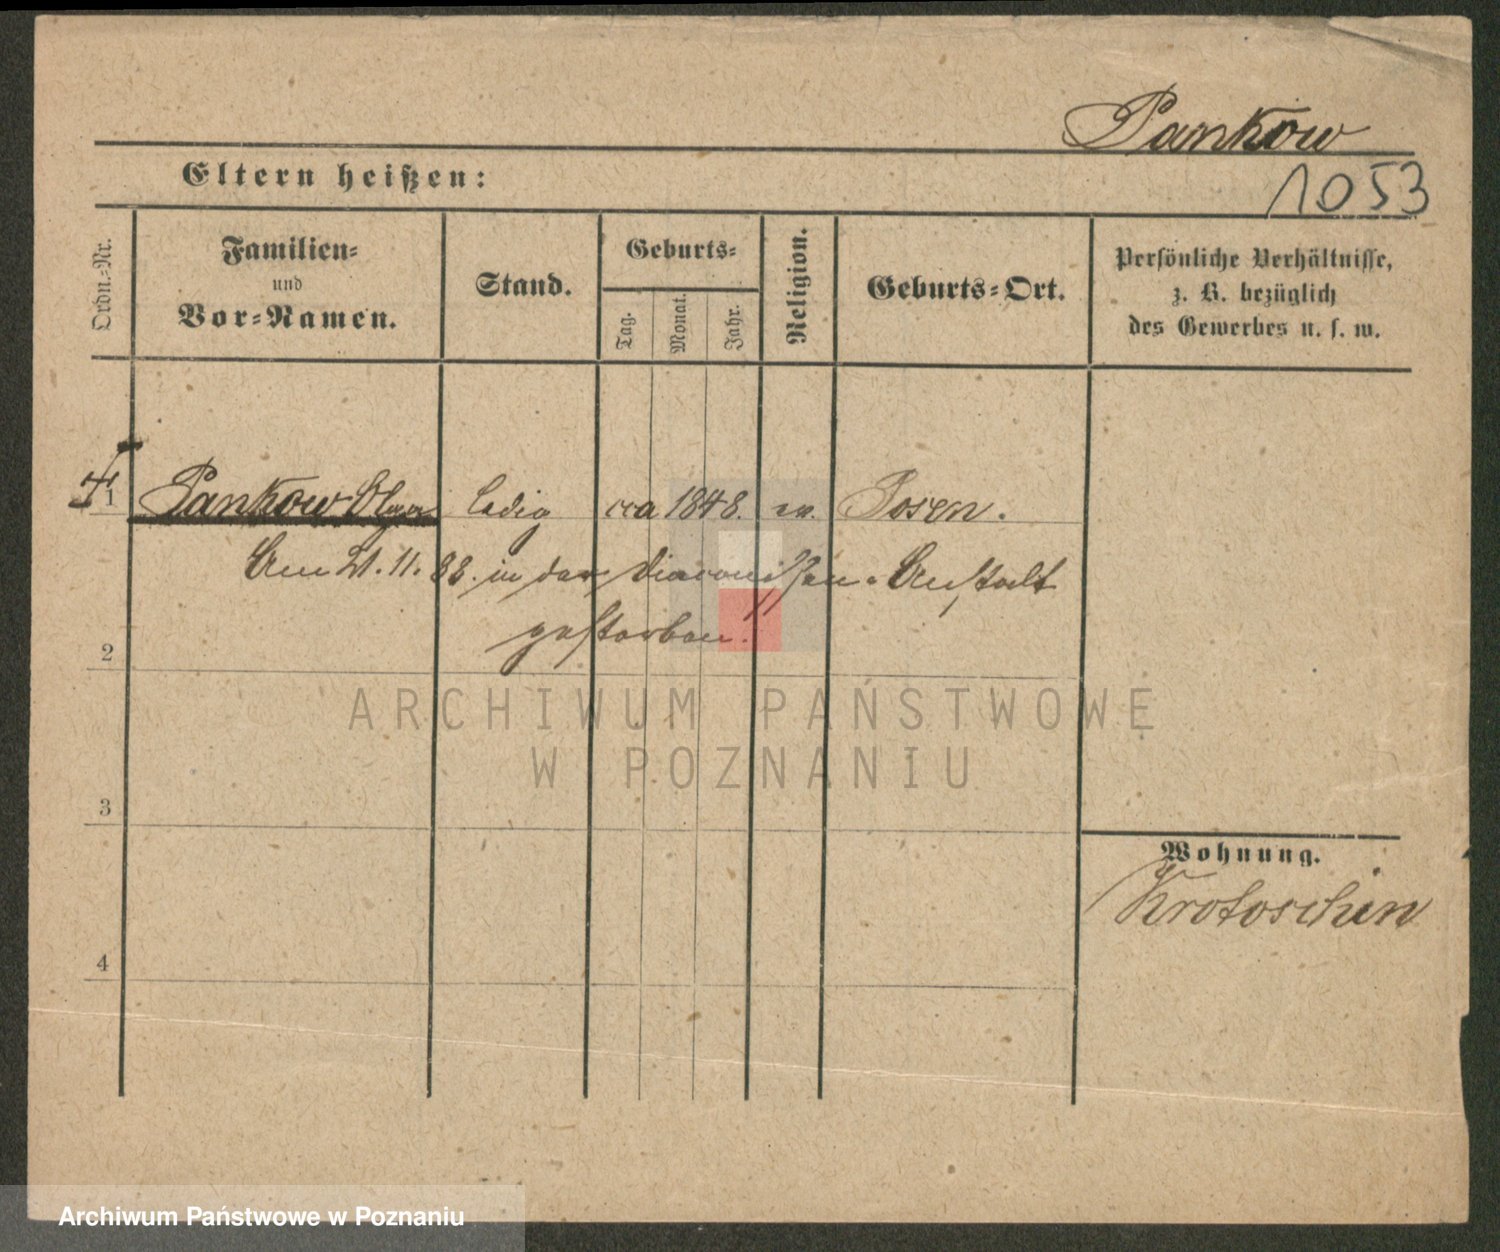 Pankow
Eltern heißen:
1053
Ordn.-Nr.
Familien-
und
Vor-Namen.
Stand.
Geburts-
Tag.
Monat.
Jahr.
Religion.
Geburts-Ort.
Persönliche Verhältnisse,
z. B. bezüglich
des Gewerbes u. s. w.
1 Pankow Olga ledig cca 1848. ev. Posen.
Am 21.11.88. in der Diaconissen-Anstalt
gestorben.
2
ARCHIWUM PAŃSTWOWE
W POZNANIU
3
Wohnung.
Krotoschin
4
Archiwum Państwowe w Poznaniu